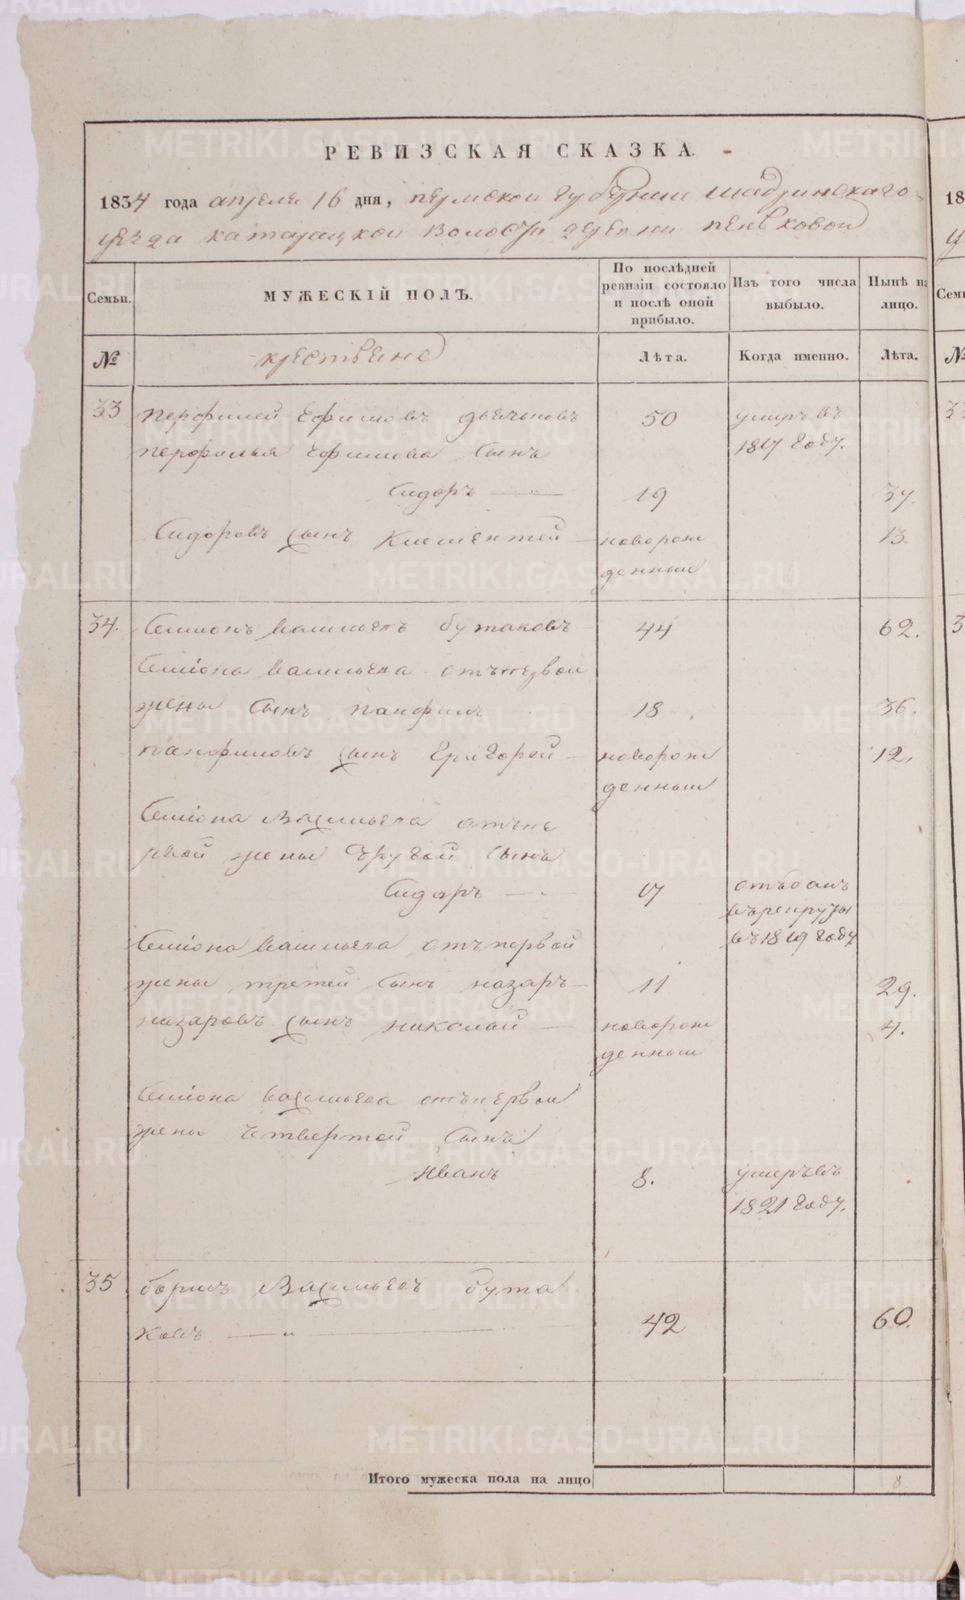 РЕВИЗСКАЯ СКАЗКА.
1834 года апреля 16 дня, пермской губернии шадринскаго
уезда катайцкой волости деревни пеньковой
Семьи.
МУЖЕСКІЙ ПОЛЪ.
По послѣдней ревизіи состояло и послѣ оной прибыло.
Изъ того числа выбыло.
Нынѣ на лицо.
№
крестьяне
Лѣта.
Когда именно.
Лѣта.
33 перфилей Ефимовъ 50 умръ въ
перфилья Ефимова сынъ 1817 году.
Сидоръ 19 37.
Сидоровъ сынъ Климентей новорож 13.
денныи
34. Семионъ василъевъ бутаковъ 44 62.
Семиона василъева отъ первои
жены сынъ панфилъ 18 36.
панфиловъ сынъ Григорей новорож 12.
денныи
Семиона василъева отъ пе
рвой жены другой сынъ
Сидаръ 17 отъданъ
въ рекруты
въ 1819 году
Семиона василъева отъ первой
жены третей сынъ назаръ 11 29.
назаровъ сынъ николай новорож 4.
денныи
Семиона василъева отъ первои
жены четвертой сынъ
Иванъ 8. умеръ въ
1821 году.
35 борисъ Василъевъ бута
ковъ 42 60.
Итого мужеска пола на лицо 8
18
Семь
№
METRIKI.GASO-URAL.RU